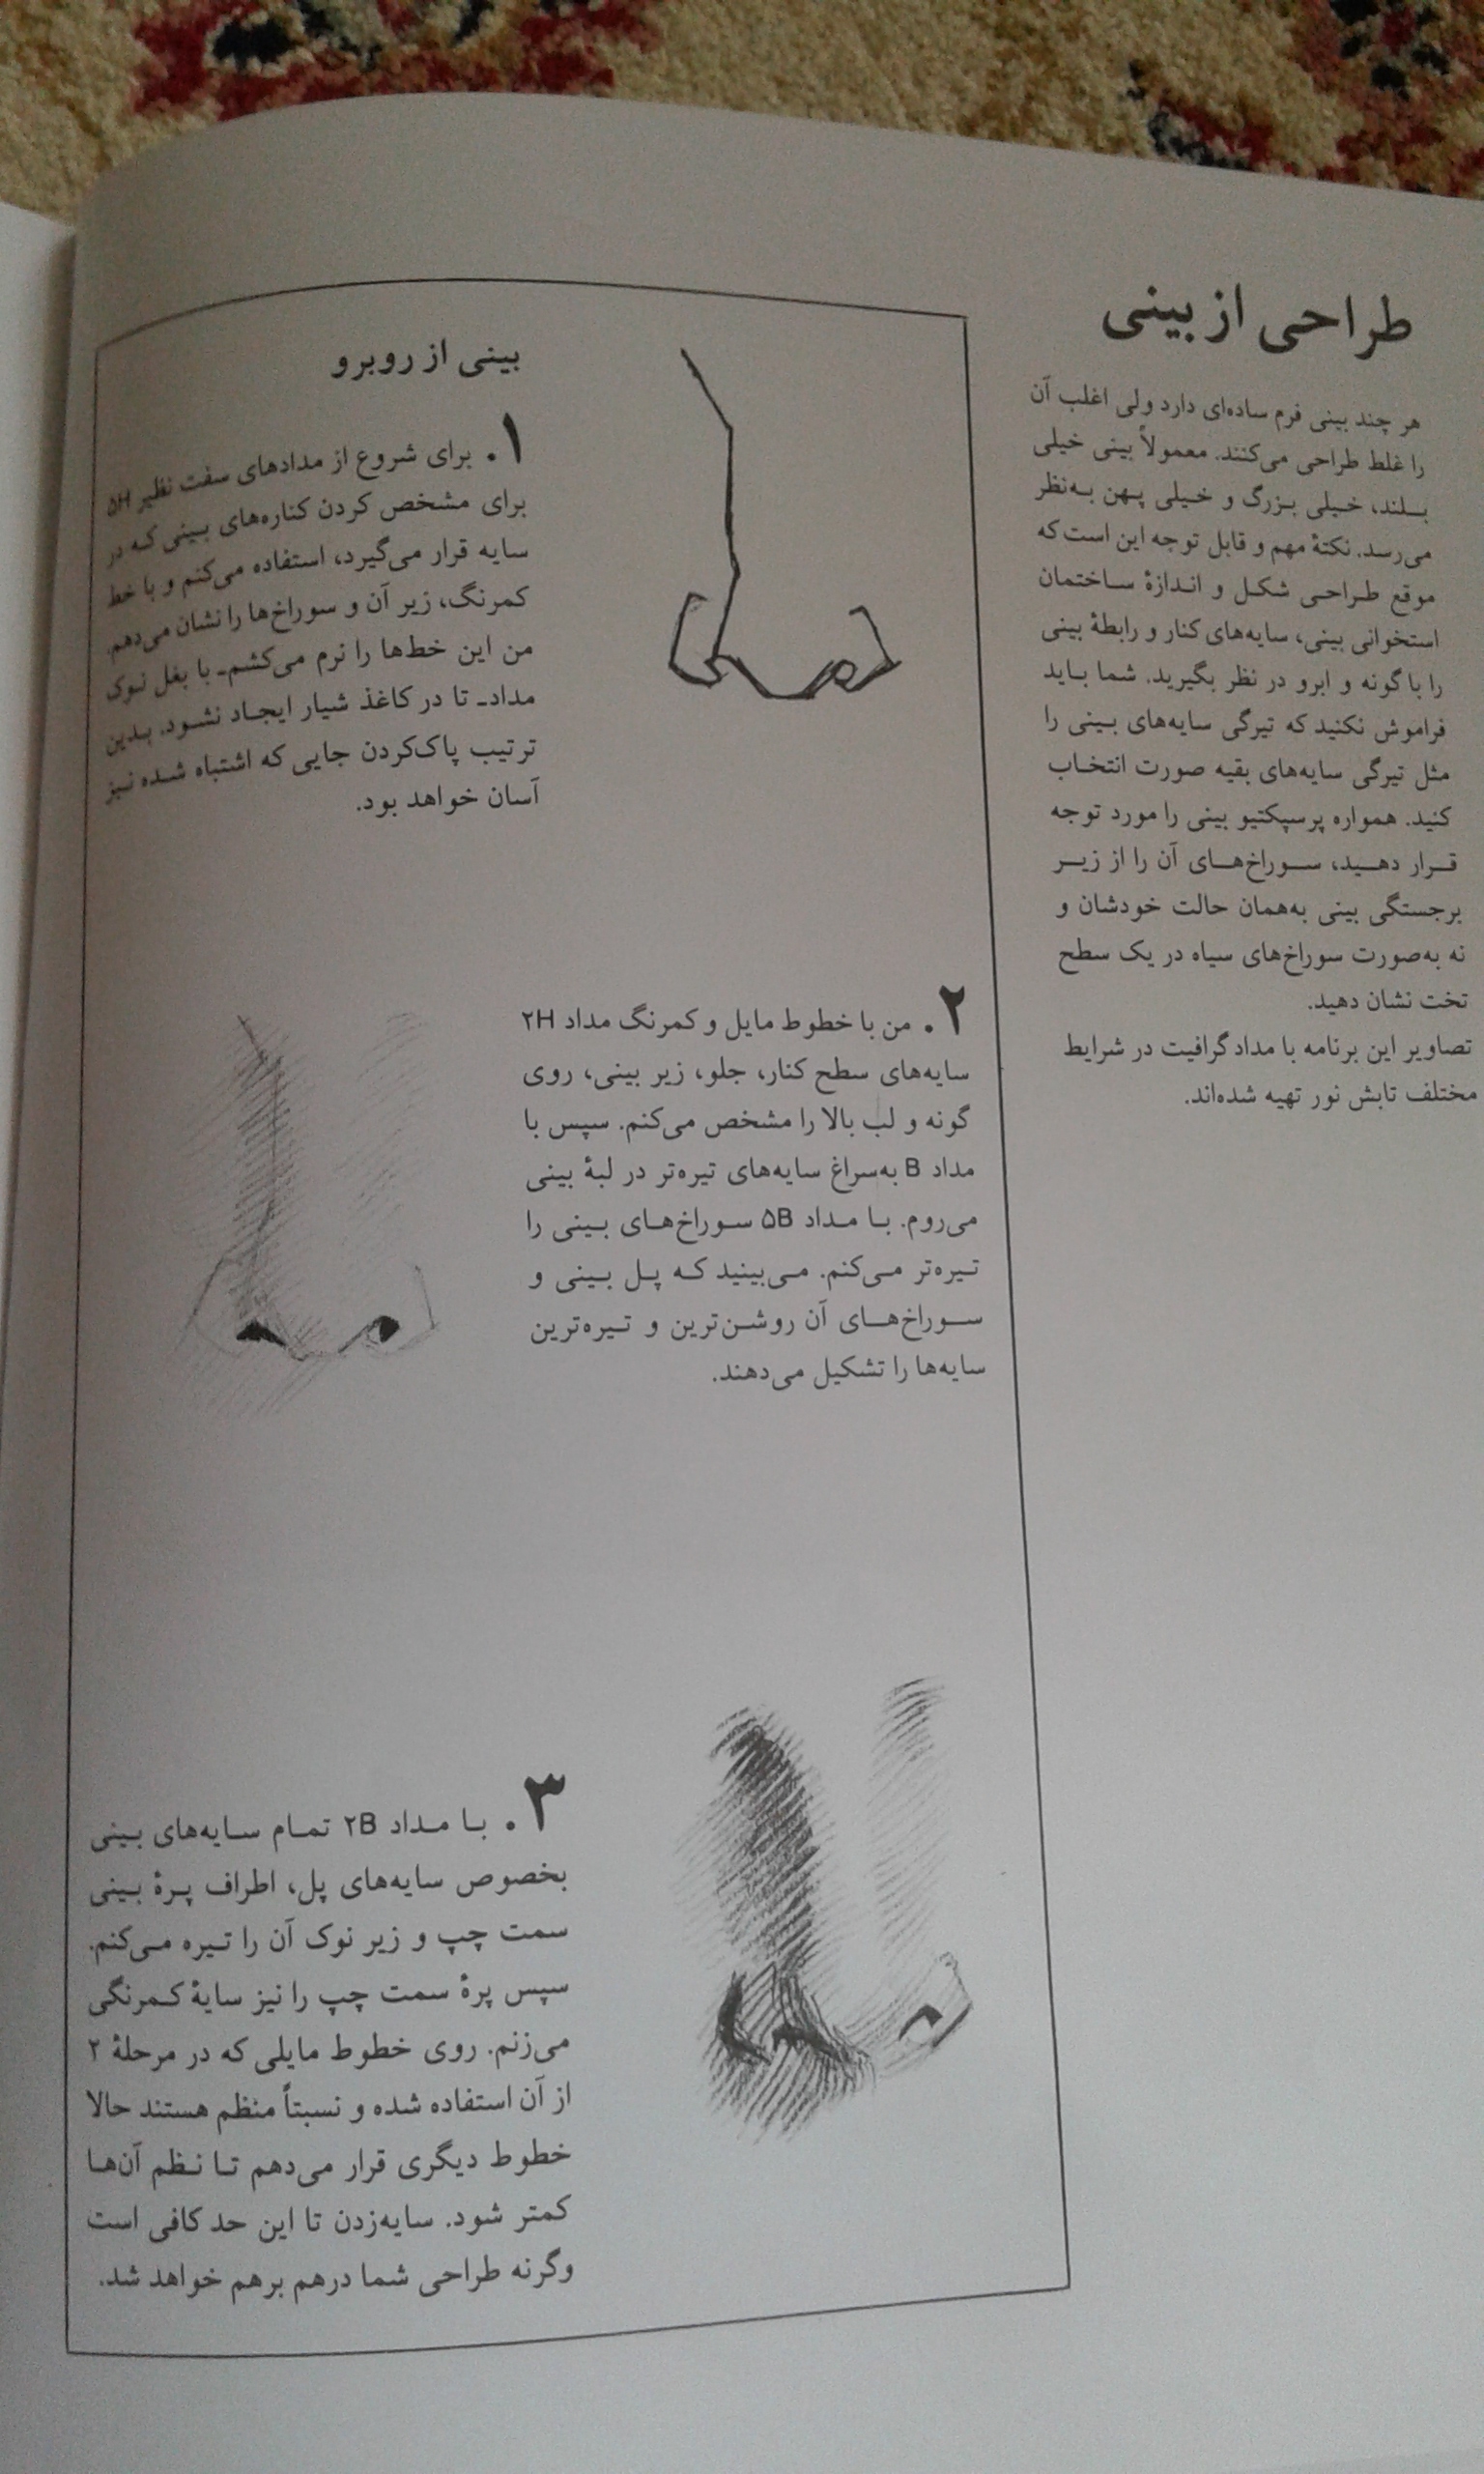 طراحی از بینی
هر چند بینی فرم ساده‌ای دارد ولی اغلب آن
را غلط طراحی می‌کنند. معمولاً بینی خیلی
بلند، خیلی بزرگ و خیلی پهن به‌نظر
می‌رسد. نکتهٔ مهم و قابل توجه این است که
موقع طراحی شکل و اندازهٔ ساختمان
استخوانی بینی، سایه‌های کنار و رابطهٔ بینی
را با گونه و ابرو در نظر بگیرید. شما باید
فراموش نکنید که تیرگی سایه‌های بینی را
مثل تیرگی سایه‌های بقیه صورت انتخاب
کنید. همواره پرسپکتیو بینی را مورد توجه
قرار دهید، سوراخ‌های آن را از زیر
برجستگی بینی به‌همان حالت خودشان و
نه به‌صورت سوراخ‌های سیاه در یک سطح
تخت نشان دهید.
تصاویر این برنامه با مداد گرافیت در شرایط
مختلف تابش نور تهیه شده‌اند.
بینی از روبرو
۱. برای شروع از مدادهای سفت نظیر ۵H
برای مشخص کردن کناره‌های بینی که در
سایه قرار می‌گیرد، استفاده می‌کنم و با خط
کمرنگ، زیر آن و سوراخ‌ها را نشان می‌دهم.
من این خط‌ها را نرم می‌کشم- با بغل نوک
مداد- تا در کاغذ شیار ایجاد نشود. بدین
ترتیب پاک‌کردن جایی که اشتباه شده نیز
آسان خواهد بود.
۲. من با خطوط مایل و کمرنگ مداد ۲H
سایه‌های سطح کنار، جلو، زیر بینی، روی
گونه و لب بالا را مشخص می‌کنم. سپس با
مداد B به‌سراغ سایه‌های تیره‌تر در لبهٔ بینی
می‌روم. با مداد ۵B سوراخ‌های بینی را
تیره‌تر می‌کنم. می‌بینید که پل بینی و
سوراخ‌های آن روشن‌ترین و تیره‌ترین
سایه‌ها را تشکیل می‌دهند.
۳. با مداد ۲B تمام سایه‌های بینی
بخصوص سایه‌های پل، اطراف پرهٔ بینی
سمت چپ و زیر نوک آن را تیره می‌کنم.
سپس پرهٔ سمت چپ را نیز سایهٔ کمرنگی
می‌زنم. روی خطوط مایلی که در مرحلهٔ ۲
از آن استفاده شده و نسبتاً منظم هستند حالا
خطوط دیگری قرار می‌دهم تا نظم آن‌ها
کمتر شود. سایه‌زدن تا این حد کافی است
وگرنه طراحی شما درهم برهم خواهد شد.